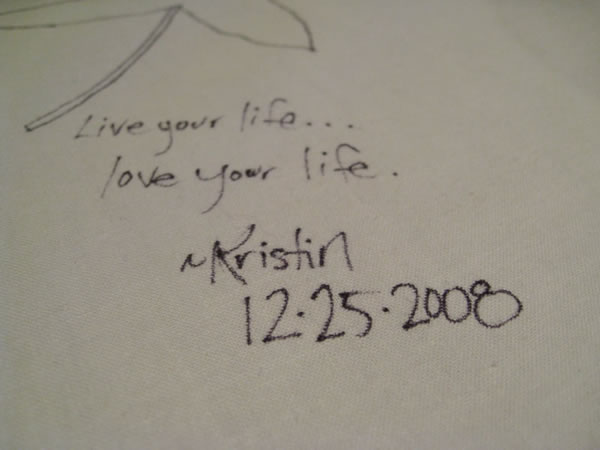 Live your life...
love your life.
~Kristin
12.25.2008